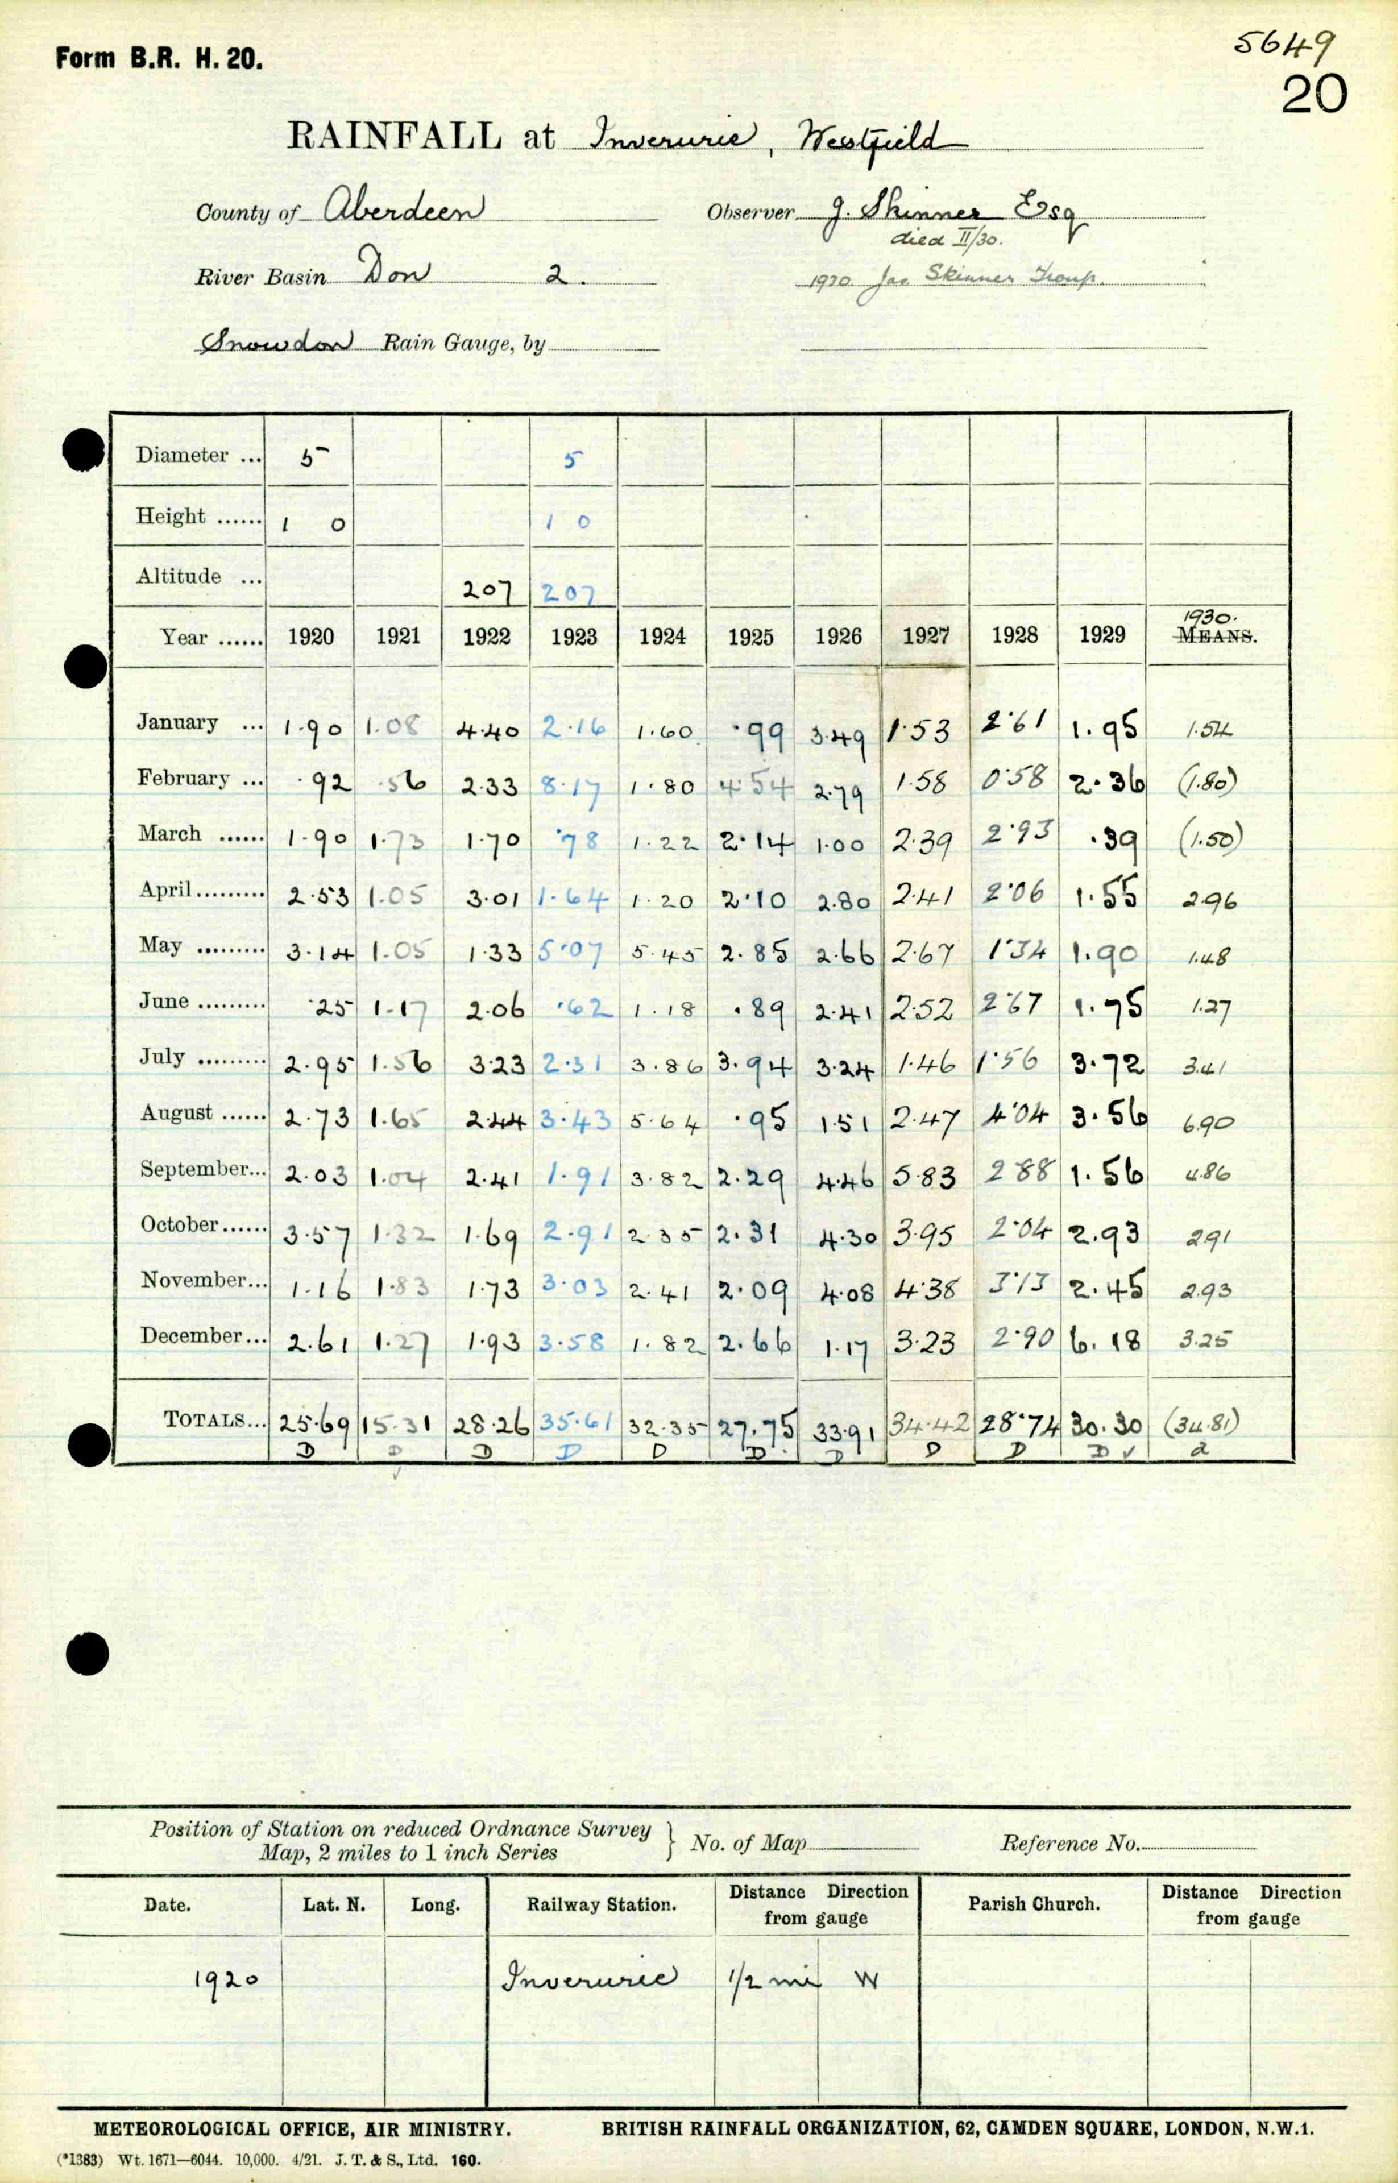 Form B.R. H. 20.
5649
20
RAINFALL at Inverurie, Westfield
County of Aberdeen Observer J. Skinner Esq
died II/30.
River Basin Don 2. 1930 Jas Skinner Troup.
Snowdon Rain Gauge, by
Diameter ... 5 5
Height ...... 1 0 1 0
Altitude ... 207 207
1930.
Year ...... 1920 1921 1922 1923 1924 1925 1926 1927 1928 1929 MEANS.
January ... 1.90 1.08 4.40 2.16 1.60 .99 3.49 1.53 2.61 1.95 1.54
February ... .92 .56 2.33 8.17 1.80 4.54 2.79 1.58 0.58 2.36 (1.80)
March ...... 1.90 1.73 1.70 .78 1.22 2.14 1.00 2.39 2.93 .39 (1.50)
April ......... 2.53 1.05 3.01 1.64 1.20 2.10 2.80 2.41 2.06 1.55 2.96
May ......... 3.14 1.05 1.33 5.07 5.45 2.85 2.66 2.67 1.34 1.90 1.48
June ......... .25 1.17 2.06 .62 1.18 .89 2.41 2.52 2.67 1.75 1.27
July ......... 2.95 1.56 3.23 2.31 3.86 3.94 3.24 1.46 1.56 3.72 3.41
August ...... 2.73 1.65 2.44 3.43 5.64 .95 1.51 2.47 4.04 3.56 6.90
September... 2.03 1.04 2.41 1.91 3.82 2.29 4.46 5.83 2.88 1.56 4.86
October...... 3.57 1.32 1.69 2.91 2.35 2.31 4.30 3.95 2.04 2.93 2.91
November... 1.16 1.83 1.73 3.03 2.41 2.09 4.08 4.38 3.13 2.45 2.93
December... 2.61 1.27 1.93 3.58 1.82 2.66 1.17 3.23 2.90 6.18 3.25
TOTALS... 25.69 15.31 28.26 35.61 32.35 27.75 33.91 34.42 28.74 30.30 (34.81)
D D D D D D D D D D ✓ d
✓
Position of Station on reduced Ordnance Survey
Map, 2 miles to 1 inch Series } No. of Map Reference No.
Date. Lat. N. Long. Railway Station. Distance Direction from gauge Parish Church. Distance Direction from gauge
1920 Inverurie 1/2 mi W
METEOROLOGICAL OFFICE, AIR MINISTRY. BRITISH RAINFALL ORGANIZATION, 62, CAMDEN SQUARE, LONDON, N.W.1.
(*1383) Wt. 1671—6044. 10,000. 4/21. J. T. & S., Ltd. 160.